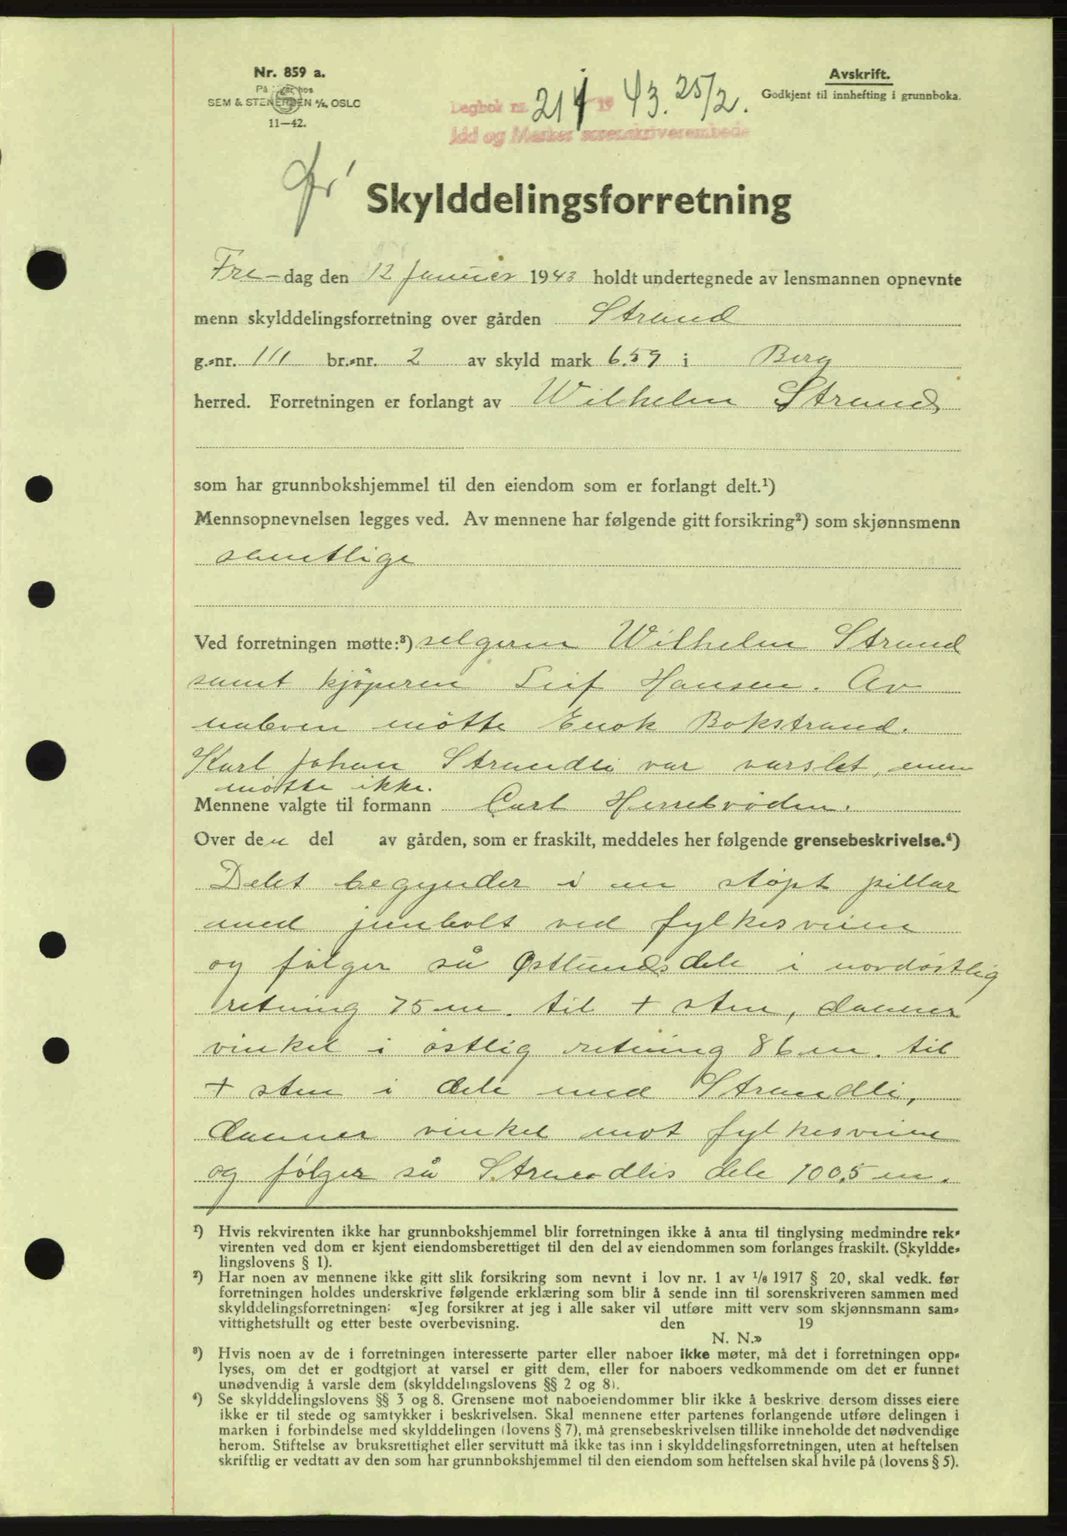 Nr. 859 a.
På lager hos
SEM & STENERSEN A/S, OSLO
11—42.
Dagbok nr. 214 19 43. 25/2.
Idd og Marker sorenskriverembede
Avskrift.
Godkjent til innhefting i grunnboka.
Skylddelingsforretning
Fre-dag den 12 Januar 1943 holdt undertegnede av lensmannen opnevnte
menn skylddelingsforretning over gården Strand
g.-nr. 111 br.-nr. 2 av skyld mark 6.59 i Berg
herred. Forretningen er forlangt av Wilhelm Strand
som har grunnbokshjemmel til den eiendom som er forlangt delt.¹)
Mennsopnevnelsen legges ved. Av mennene har følgende gitt forsikring²) som skjønnsmenn
samtlige
Ved forretningen møtte:³) selgeren Wilhelm Strand
samt kjöperen Leif Hansen. Av
naboen mötte Enok Bokstrand.
Karl Johan Strandli var varslet, men
mötte ikke.
Mennene valgte til formann Carl Herrebröden.
Over den del av gården, som er fraskilt, meddeles her følgende grensebeskrivelse.⁴)
Delet begynder i en støpt pillar
med jernbolt ved fylkesveien
og følger så Østlunds dele i nordöstlig
retning 75 m. til + sten, danner
vinkel i östlig retning 86 m. til
+ sten i dele med Strandli,
danner vinkel mot fylkesveien
og følger så Strandlis dele 100,5 m.
¹) Hvis rekvirenten ikke har grunnbokshjemmel blir forretningen ikke å anta til tinglysing medmindre rek-
virenten ved dom er kjent eiendomsberettiget til den del av eiendommen som forlanges fraskilt. (Skyldde-
lingslovens § 1).
²) Har noen av mennene ikke gitt slik forsikring som nevnt i lov nr. 1 av 1/6 1917 § 20, skal vedk. før
forretningen holdes underskrive følgende erklæring som blir å sende inn til sorenskriveren sammen med
skylddelingsforretningen: «Jeg forsikrer at jeg i alle saker vil utføre mitt verv som skjønnsmann sam-
vittighetsfullt og etter beste overbevisning. den 19
N. N.»
³) Hvis noen av de i forretningen interesserte parter eller naboer ikke møter, må det i forretningen opp-
lyses, om det er godtgjort at varsel er gitt dem, eller for naboers vedkommende om det er funnet
unødvendig å varsle dem (skylddelingslovens §§ 2 og 8).
⁴) Se skylddelingslovens §§ 3 og 8. Grensene mot naboeiendommer blir ikke å beskrive dersom disses eiere
ikke er til stede og samtykker i beskrivelsen. Skal mennene etter partenes forlangende utføre delingen i
marken i forbindelse med skylddelingen (lovens § 7), må grensebeskrivelsen tillike inneholde det nødvendige
herom. Stiftelse av bruksrettighet eller servitutt må ikke tas inn i skylddelingsforretningen, uten at heftelsen
skriftlig er vedtatt av den som har grunnbokshjemmel til den eiendom som heftelsen skal hvile på (lovens § 5).